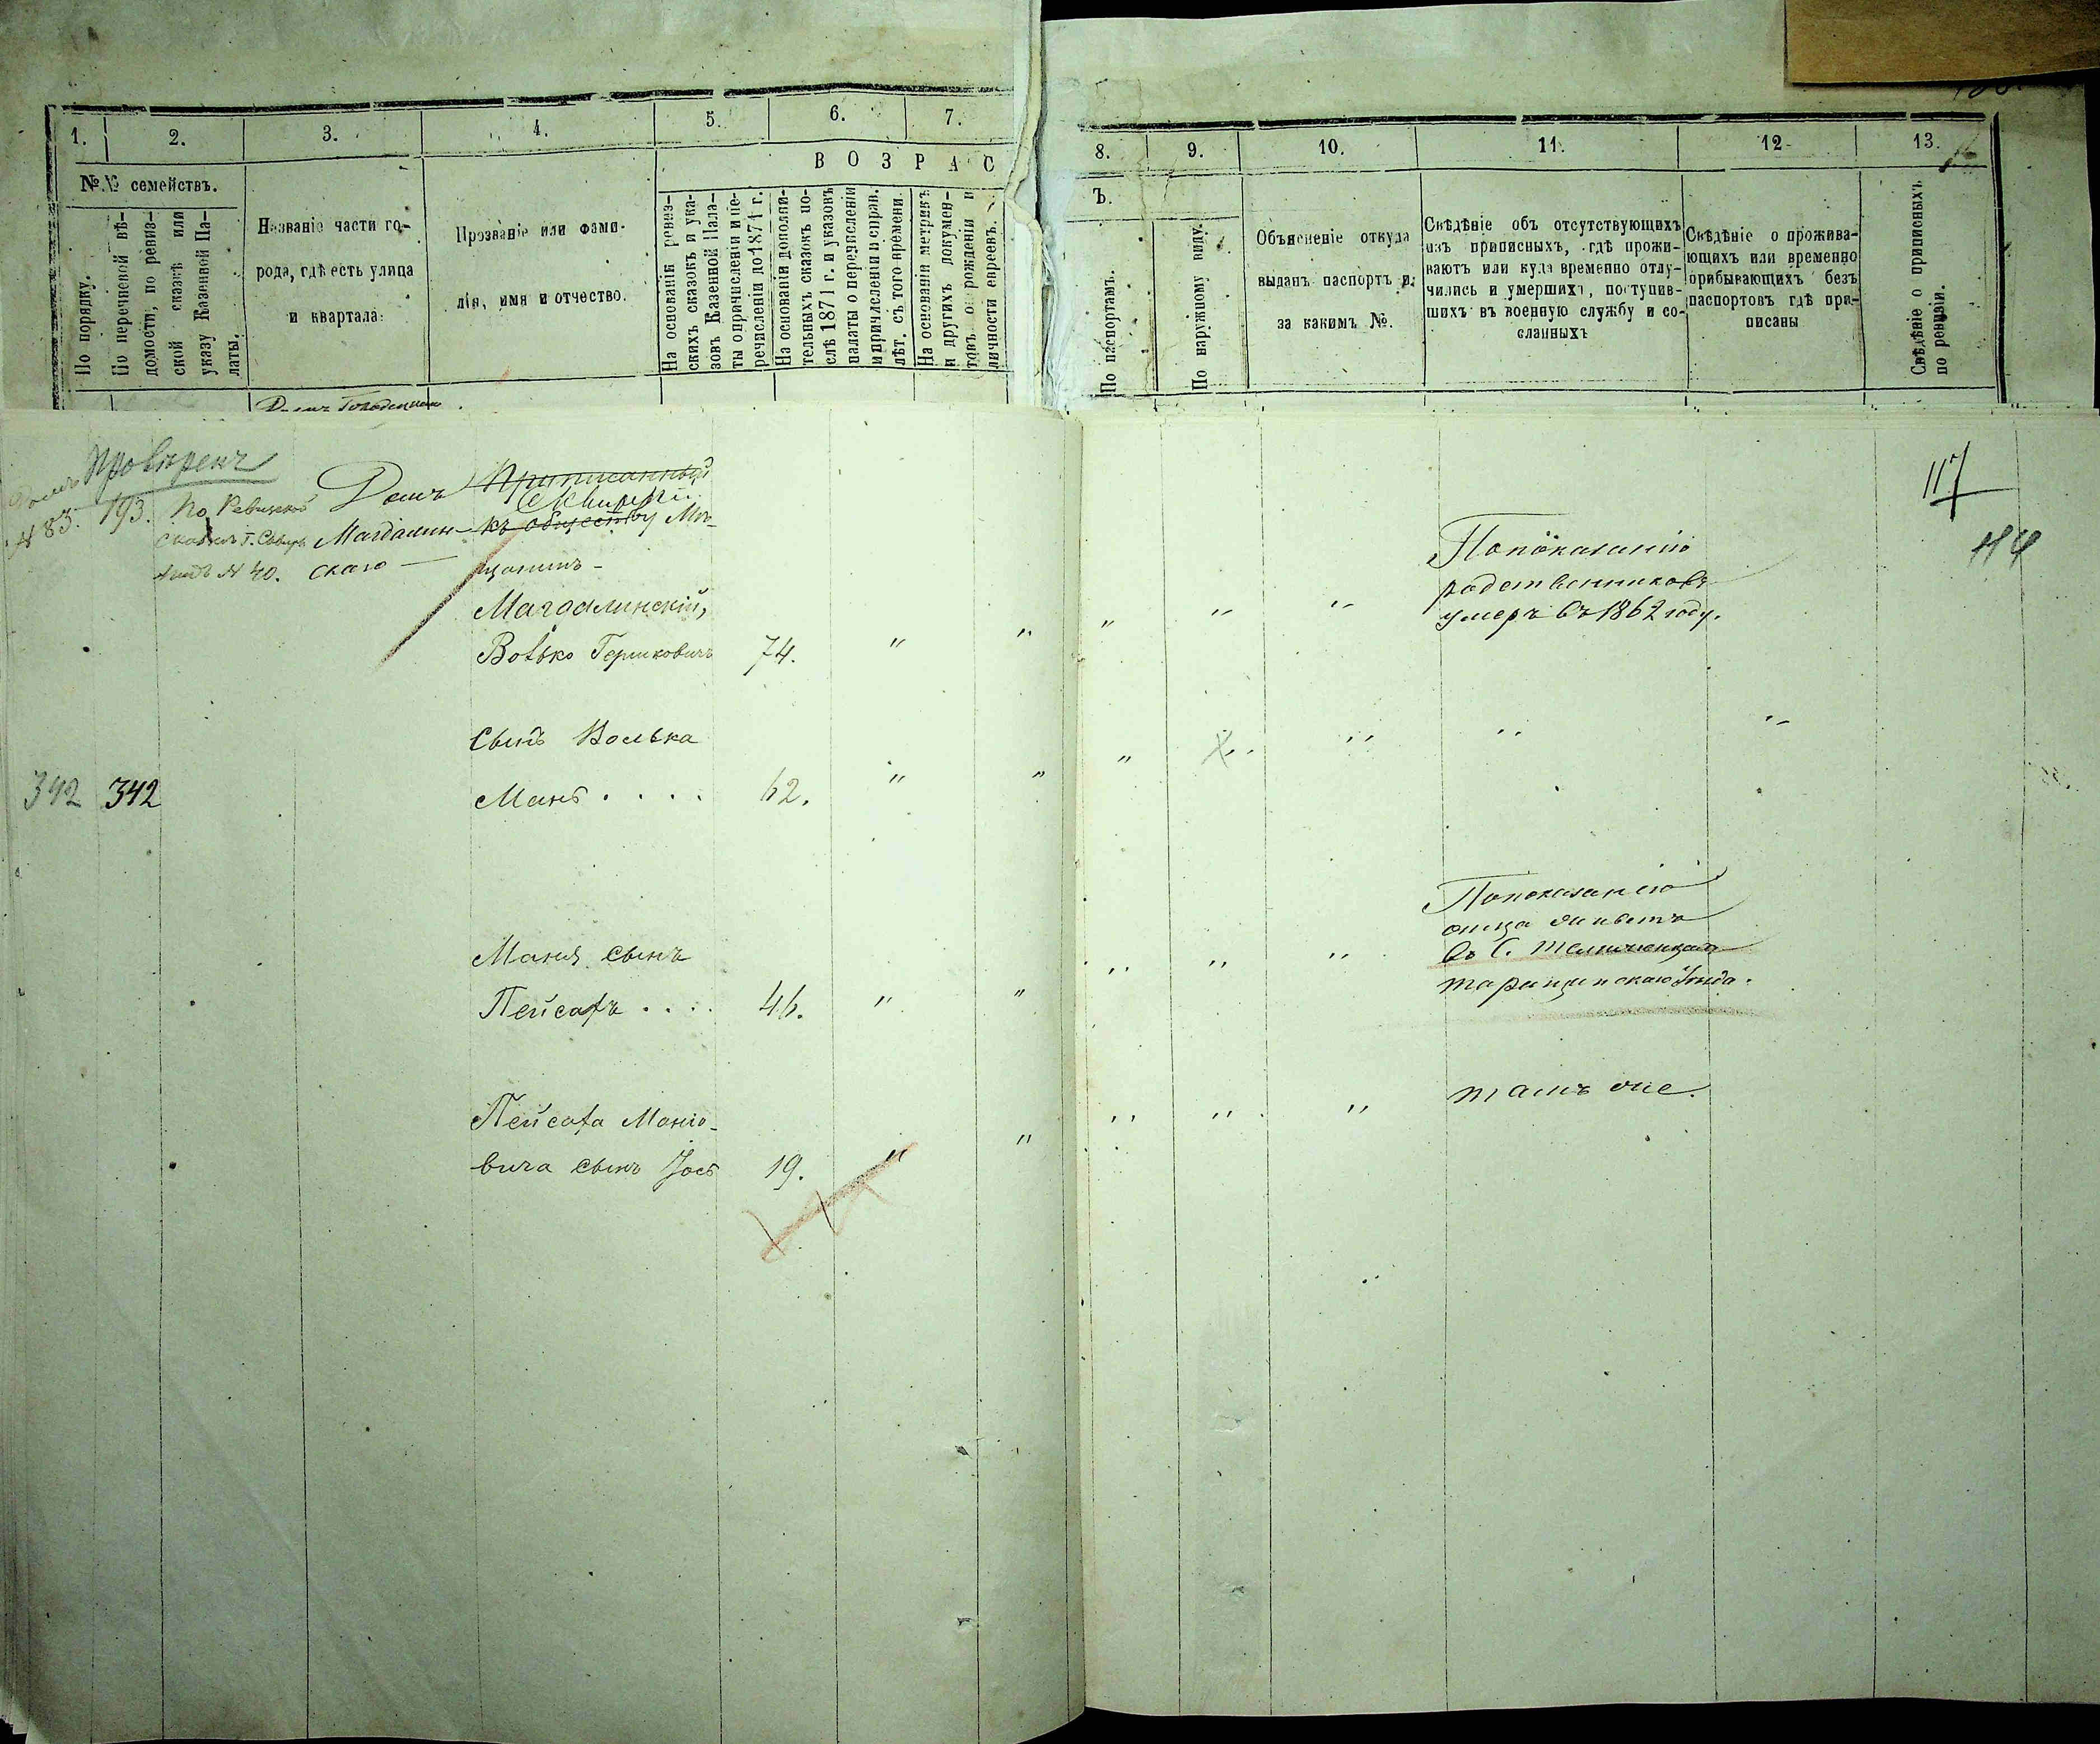 1.
2.
3.
4.
5.
6.
7.
№№ семействъ.
По порядку.
По перечневой вѣ-
домости, по ревиз-
ской сказкѣ или
указу Казенной Па-
латы.
Названіе части го-
рода, гдѣ есть улица
и квартала.
Прозваніе или фами-
лія, имя и отчество.
ВОЗРАС
На основаніи ревиз-
скихъ сказокъ и ука-
зовъ Казенной Пала-
ты о причисленіи и пе-
речисленіи до 1871 г.
На основаніи дополни-
тельныхъ сказокъ по-
слѣ 1871 г. и указовъ
палаты о перечисленіи
и причисленіи и справ.
лѣт. съ того времени.
На основаніи метрикъ
и другихъ докумен-
товъ о рожденіи и
личности евреевъ.
8.
9.
10.
11.
12
13.
Ъ.
По паспортамъ.
По наружному виду.
Объясненіе откуда
выданъ паспортъ и
за какимъ №.
Свѣдѣніе объ отсутствующихъ
изъ приписныхъ, гдѣ прожи-
ваютъ или куда временно отлу-
чились и умершихъ, поступив-
шихъ въ военную службу и со-
сланныхъ
Свѣдѣніе о прожива-
ющихъ или временно
прибывающихъ безъ
паспортовъ гдѣ при-
писаны
Свѣдѣніе о приписныхъ
по ревизіи.
Домъ
Провѣренъ
Домъ
№ 83.
193.
По Ревизской
№ 40.
Домъ
Магдалин-
скаго
Приписанный
къ обществу Мѣ-
щанинъ -
Магдалинскій,
Волько Гершковичъ 74. " " " " "
Попоказанію
родственниковъ
умеръ въ 1862 году.
117
114
сынъ Волька
342 342
Мань . . . . 62. " " " " " " "
Маня сынъ
Пейсахъ . . . . 46. " " " " "
Попоказанію
отца живетъ
въ С.
таращанскаго Уезда.
Пейсаха Маніо-
вича сынъ Іось 19. " " " " "
тамъ же.